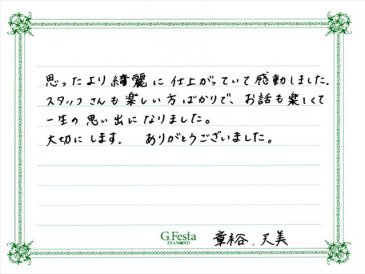 思ったより綺麗に仕上がっていて感動しました。
スタッフさんも楽しい方ばかりで、お話も楽しくて
一生の思い出になりました。
大切にします。 ありがとうございました。
G.Festa
DIAMOND
章裕、文美